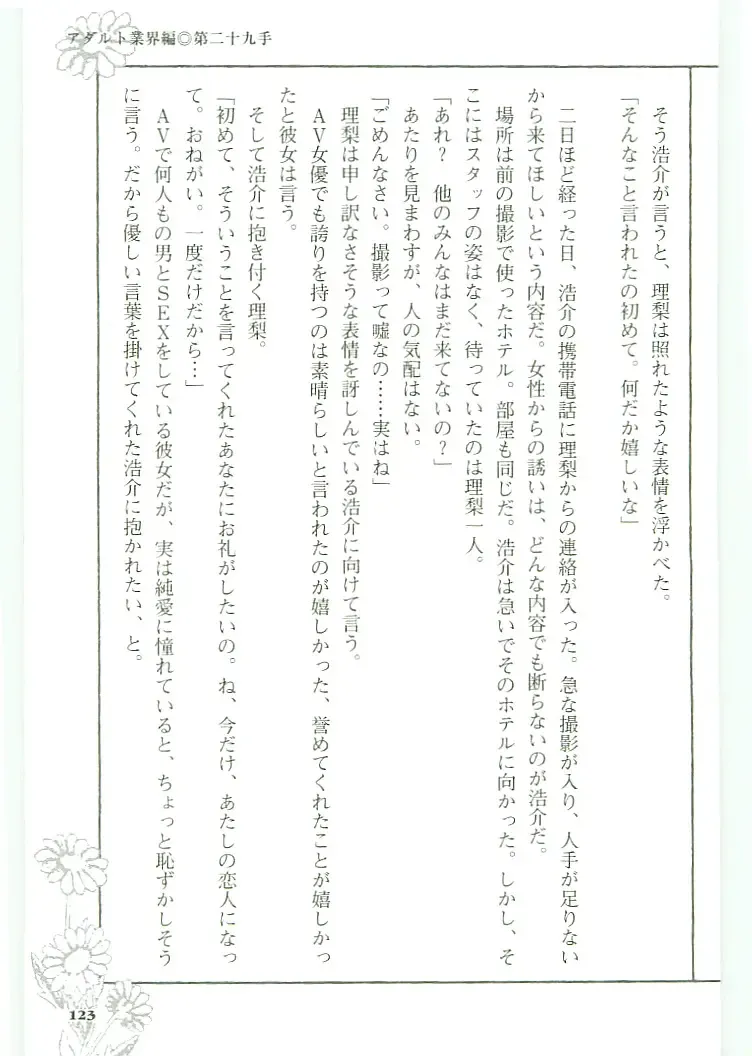 アダルト業界編◎第二十九手
そう浩介が言うと、理梨は照れたような表情を浮かべた。
「そんなこと言われたの初めて。何だか嬉しいな」
二日ほど経った日、浩介の携帯電話に理梨からの連絡が入った。急な撮影が入り、人手が足りない
から来てほしいという内容だ。女性からの誘いは、どんな内容でも断らないのが浩介だ。
場所は前の撮影で使ったホテル。部屋も同じだ。浩介は急いでそのホテルに向かった。しかし、そ
こにはスタッフの姿はなく、待っていたのは理梨一人。
「あれ?　他のみんなはまだ来てないの?」
あたりを見まわすが、人の気配はない。
「ごめんなさい。撮影って嘘なの……実はね」
理梨は申し訳なさそうな表情を訝しんでいる浩介に向けて言う。
AV女優でも誇りを持つのは素晴らしいと言われたのが嬉しかった、誉めてくれたことが嬉しかっ
たと彼女は言う。
そして浩介に抱き付く理梨。
「初めて、そういうことを言ってくれたあなたにお礼がしたいの。ね、今だけ、あたしの恋人になっ
て。おねがい。一度だけだから…」
AVで何人もの男とSEXをしている彼女だが、実は純愛に憧れていると、ちょっと恥ずかしそう
に言う。だから優しい言葉を掛けてくれた浩介に抱かれたい、と。
123